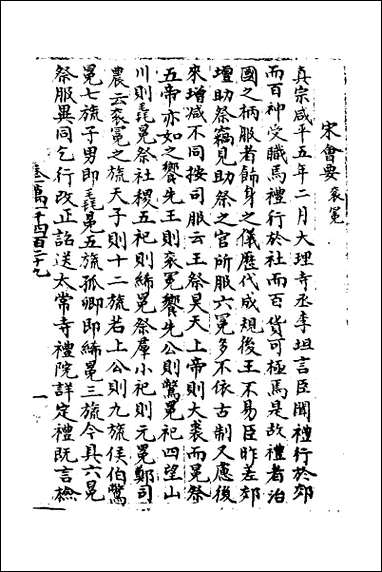 宋會要 衮冕
真宗咸平五年二月大理寺丞李坦言臣聞禮行於郊
而百神受職焉禮行於社而百貨可極焉是故禮者治
國之柄服者飾身之儀歷代成規後王不易臣昨差郊
壇助祭竊見助祭之官所服六冕多不依古制又慮後
來增減不同按司服云王祭昊天上帝則大裘而冕祭
五帝亦如之饗先王則衮冕饗先公則鷩冕祀四望山
川則毳冕祭社稷五祀則絺冕祭羣小祀則元冕鄭司
農云衮冕之旒天子則十二旒若上公則九旒侯伯鷩
冕七旒子男即毳冕五旒孤卿即絺冕三旒今具六冕
祭服異同乞行改正詔送太常寺禮院詳定禮既言檢
卷一萬一千四百三十九
一